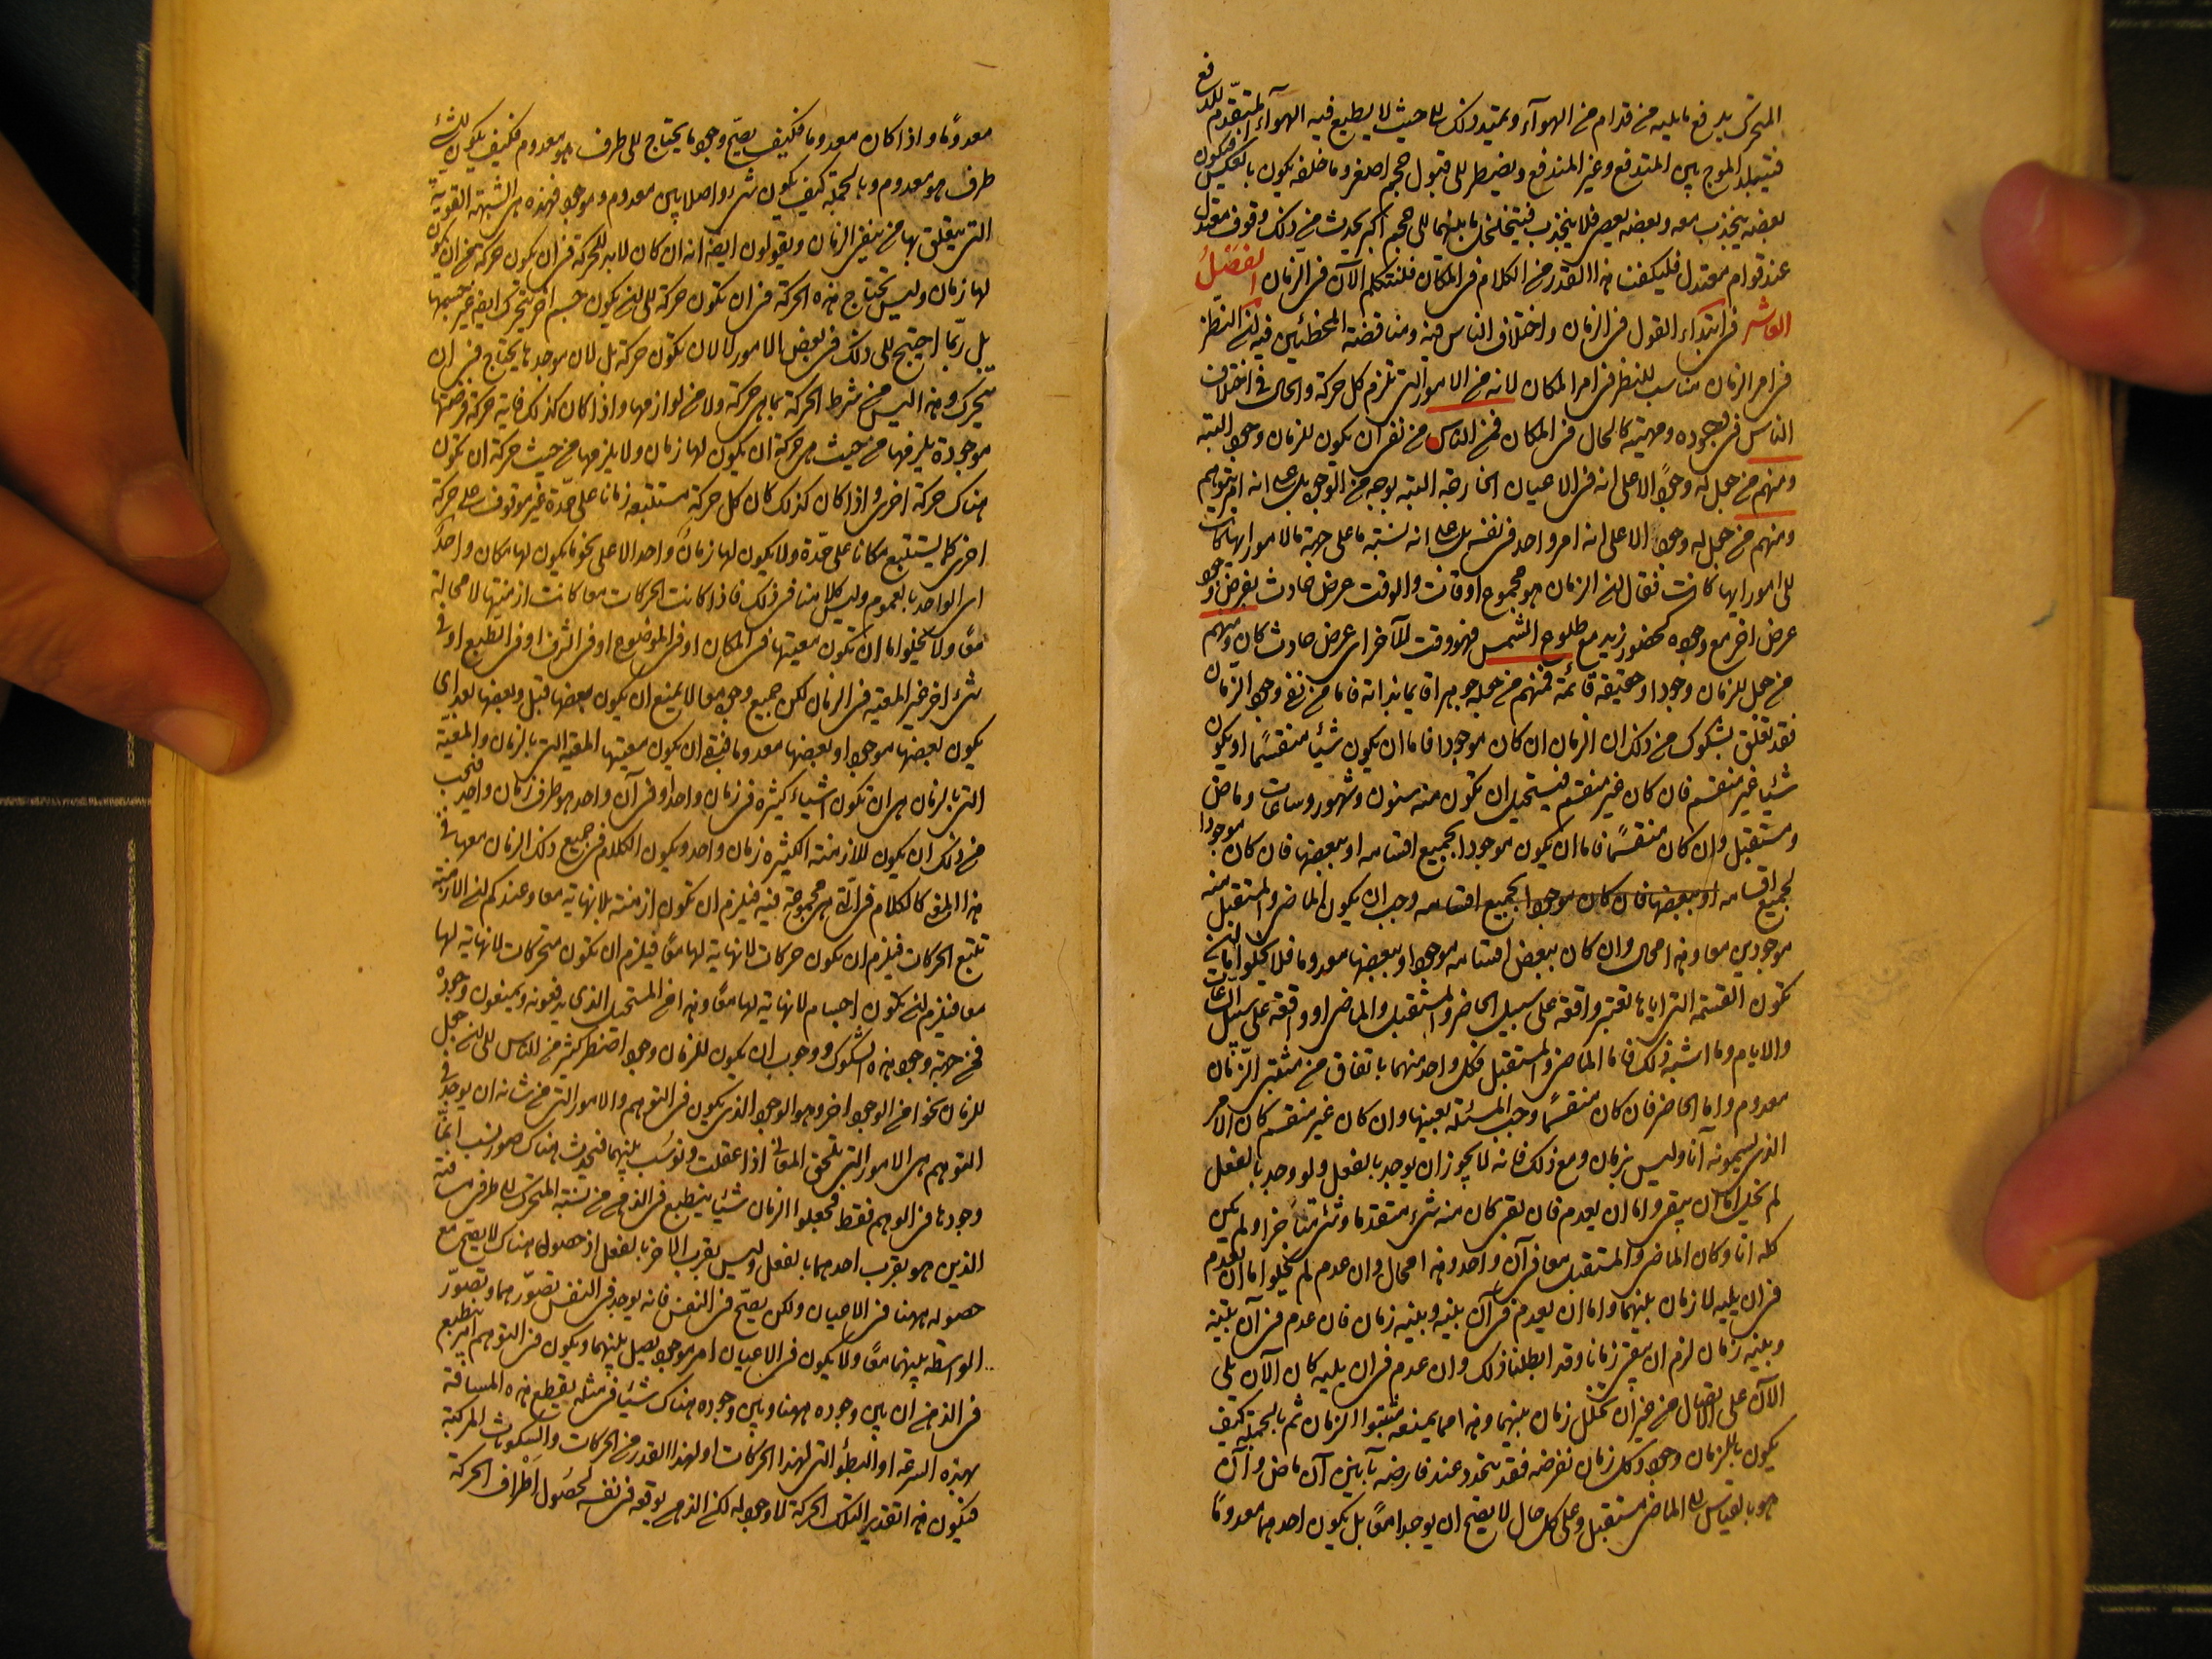 المتحرك يدفع ما يليه من قدام من الهوآء ويمتد ذلك الى حيث لا يطيع فيه الهوآء المتقدم للدفع
فيتلبد الموج بين المندفع وغير المندفع ويضطر الى قبول حجم اصغر وما خلفه يكون بالعكس فيكون
بعضه ينجذب معه وبعضه يعصى فلا ينجذب فيتخلخل ما بينهما الى حجم اكبر يحدث من ذلك وقوف معتدل
عند قوام معتدل فليكفنا هذا القدر من الكلام فى المكان فلنتكلم الآن فى الزمان الفصل
العاشر فى ابتداء القول فى الزمان واختلاف الناس فيه ومناقضة المخطئين فيه ان النظر
فى امر الزمان مناسب للنظر فى امر المكان لانه من الامور التى تلزم كل حركة والحال فى اختلاف
الناس فى وجوده ومهيته كالحال فى المكان فمن الناس من نفى ان يكون للزمان وجود البته
ومنهم من جعل له وجودًا لا على انه فى الاعيان الخارجة البته بوجه من الوجوه بل على انه امر متوهم
ومنهم من جعل له وجودا لا على انه امر واحد فى نفسه بل على انه نسبة ما على جهة ما لامور ايها كانت
الى امور ايها كانت فقال ان الزمان هو مجموع اوقات والوقت عرض حادث يفرض وجود
عرض اخر مع وجوده كحضور زيد مع طلوع الشمس فهو وقت للآخر اى عرض حادث كان ومنهم
من جعل للزمان وجودا وحقيقة قائمة فمنهم من جعله جوهرا قائما بذاته فاما من نفى وجود الزمان
فقد تعلق بشكوك من ذلك ان الزمان ان كان موجودا فاما ان يكون شيئا منقسمًا او يكون
شيئا غير منقسم فان كان غير منقسم فيستحيل ان تكون منه سنون وشهور وساعات وماض
ومستقبل وان كان منقسمًا فاما ان يكون موجودا بجميع اقسامه او ببعضها فان كان موجودا
بجميع اقسامه او ببعضها فان كان موجودا بجميع اقسامه وجب ان يكون الماضى والمستقبل منه
موجودين معا وهذا محال وان كان ببعض اقسامه موجودا وببعضها معدوما فلا يخلو اما ان
تكون القسمة التى اياها نعتبر واقعة على سبيل الحاضر والمستقبل والماضى او واقعة على سبيل الساعات
والايام وما اشبه ذلك فاما الماضى والمستقبل فكل واحد منهما باتفاق من مثبتى الزمان
معدوم واما الحاضر فان كان منقسمًا وجب المسئلة بعينها وان كان غير منقسم كان الامر
الذى يسمونه آنا وليس بزمان ومع ذلك فانه لا يجوز ان يوجد بالفعل ولو وجد بالفعل
لم يخل اما ان يبقى واما ان يعدم فان بقى كان منه شىء متقدما وشىء متأخرا ولم يكن
كله آنا وكان الماضى والمستقبل معا فى آن واحد وهذا محال وان عدم لم يخلوا اما ان يعدم
فى ان يليه لا زمان بينهما واما ان يعدم فى آن بينه وبينه زمان فان عدم فى آن بينه
وبينه زمان لزم ان يبقى زمانا وقد ابطلنا ذلك وان عدم فى ان يليه كان الآن يلى
الآن على الاتصال من غير ان يتخلل زمان بينهما وهذا مما يمنعه مثبتوا الزمان ثم بالجملة كيف
يكون للزمان وجود وكل زمان نفرضه فقد يتحدد عند فارضه بآنين آن ماض وآن
هو بالقياس الى الماضى مستقبل وعلى كل حال لا يصح ان يوجدا معًا بل يكون احدهما معدومًا
معدومًا واذا كان معدوما فكيف يصح وجود ما يحتاج الى طرف هو معدوم فكيف يكون للشئ
طرف هو معدوم وبالجملة كيف يكون شىء واصلا بين معدوم وموجود فهذه هى الشبهة القوية
التى يتعلق بها من ينفى الزمان ويقولون ايضا انه ان كان لا بد للحركة فى ان تكون حركة من ان يكون
لها زمان وليس تحتاج هذه الحركة فى ان تكون حركة الى ان يكون جسم اخر يتحرك ايضا غير جسمها
بل ربما احتيج الى ذلك فى بعض الامور لا لان تكون حركة بل لان موجدها يحتاج فى ان
يتحرك وهذا ليس من شرط الحركة بما هى حركة ولا من لوازمها واذا كان كذلك فاية حركة فرضتها
موجودة يلزمها من حيث هى حركة ان يكون لها زمان ولا يلزمها من حيث حركة ان تكون
هناك حركة اخرى واذا كان كذلك كان كل حركة مستتبعه زمانا على حدة غير موقوف على حركة
اخرى كما يستتبع مكانا على حدة ولا يكون لها زمان واحد الا على نحو ما يكون لها مكان واحد
اى الواحد بالعموم وليس كلامنا فى ذلك فاذا كانت الحركات معا كانت ازمنتها لا محالة
معًا ولا يخلوا اما ان تكون معيتها فى المكان او فى الموضوع او فى الشرف او فى الطبع او فى
شىء اخر غير المعية فى الزمان لكن جميع وجوه معا لا يمنع ان يكون بعضها قبل وبعضها بعد اى
يكون بعضها موجودا وبعضها معدوما فبقى ان يكون معيتها المعية التى بالزمان والمعية
التى بالزمان هى ان تكون اشياء كثيرة فى زمان واحد او فى آن واحد هو طرف زمان واحد فيجب
من ذلك ان يكون للازمنة الكثيره زمان واحد ويكون الكلام فى جميع ذلك الزمان معها فى
هذا المعنى كالكلام فى التى هى مجموعة فيه فيلزم ان تكون ازمنة بلا نهاية معا وعندكم ان الازمنة
تتبع الحركات فيلزم ان يكون حركات لا نهاية لها معًا فيلزم ان تكون متحركات لا نهاية لها
معا فيلزم ان تكون اجسام لا نهاية لها معًا وهذا من المستحيل الذى يدفعونه ويمنعون وجوده
فمن جهة وجود هذه الشكوك ووجوب ان يكون للزمان وجود اضطر كثير من الناس الى ان جعل
للزمان نحوا من الوجود اخر وهو الوجود الذى يكون فى التوهم والامور التى من شانها ان يوجد فى
التوهم هى الامور التى تلحق المعانى اذا عقلت ونوسب بينها فيحدث هناك صور نسب انما
وجودها فى الوهم فقط فجعلوا الزمان شيئا ينطبع فى الذهن من نسبة المتحرك الى طرفى مسافة
الذين هو بقرب احدهما بالفعل وليس بقرب الاخر بالفعل اذ حصوله هناك لا يصح مع
حصوله ههنا فى الاعيان ولكن يصح فى النفس فانه يوجد فى النفس تصورهما وتصور
الواسطة بينهما معًا ولا يكون فى الاعيان امر موجود يصل بينهما ويكون فى التوهم امر ينطبع
فى الذهن ان بين وجوده ههنا وبين وجوده هناك شيئا فى مثله يقطع هذه المسافة
بهذه السرعة او البطؤ التى لهذا الحركات او لهذا القدر من الحركات والسكونات المركبة
فيكون هذا تقدير التلك الحركة لا وجود له لكن الذهن يوقعه فى نفسه لحصول اطراف الحركة